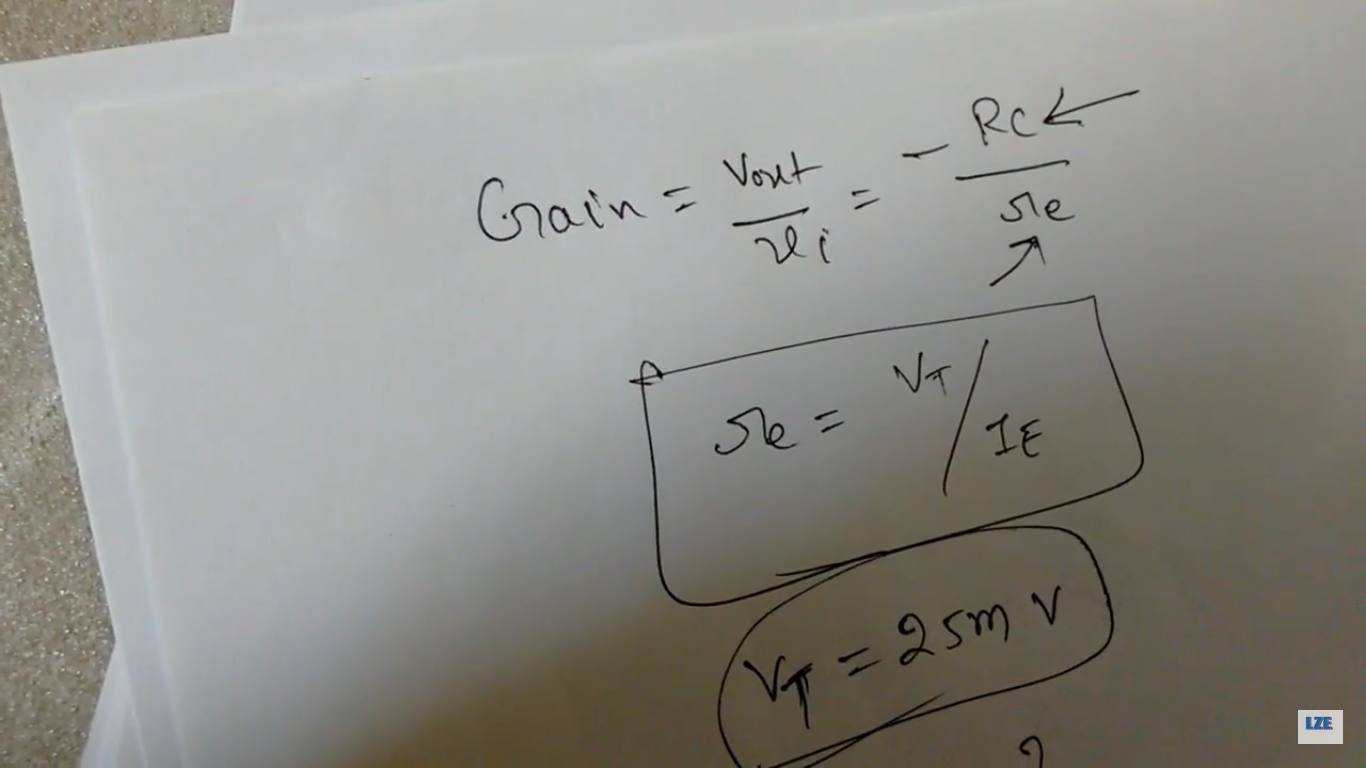 Gain = Vout / Vi = - RC / re
re = VT / IE
VT = 25m V
LZE